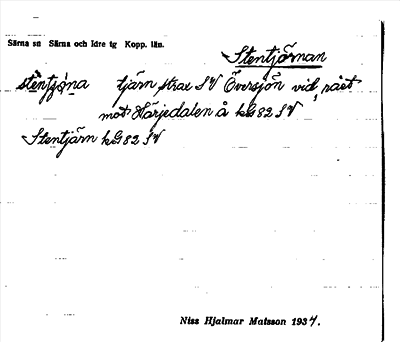 Särna sn Särna och Idre tg Kopp. län.
Stentjärnan
stèntjǫ̀na tjärn strax SV Översjön vid rået
mot Härjedalen å kG82 SV
Stentjärn kG82 SV
Niss Hjalmar Matsson 1934.